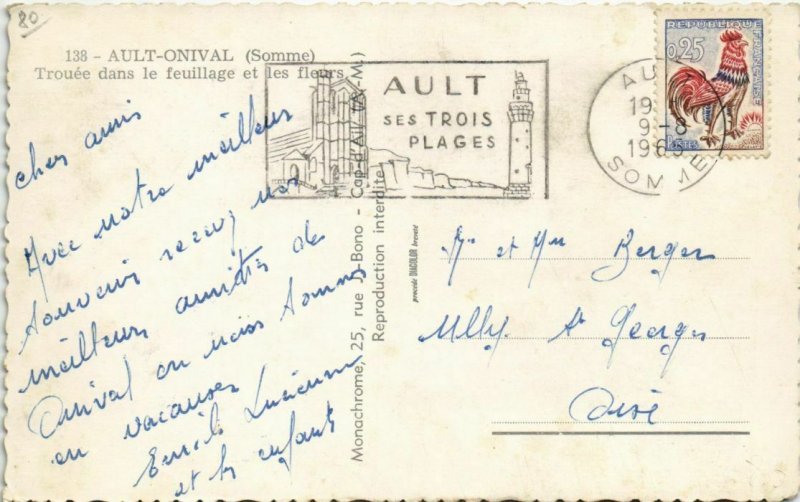 80
138 - AULT-ONIVAL (Somme)
Trouée dans le feuillage et les fleurs
AULT
SES TROIS
PLAGES
AULT
19
9-8
1965
SOMME
REPUBLIQUE FRANÇAISE
0,25
POSTES
cher amis
Avec notre meilleur
souvenir recevez nos
meilleurs amitiés de
Onival ou nous sommes
en vacances
Emile Lucienne
et les enfants
Monochrome, 25, rue J.-Bono - Cap-d'Ail (A.-M.)
Reproduction interdite
procédé DIACOLOR breveté
Mr et Mme Berger
Ully St Georges
Oise